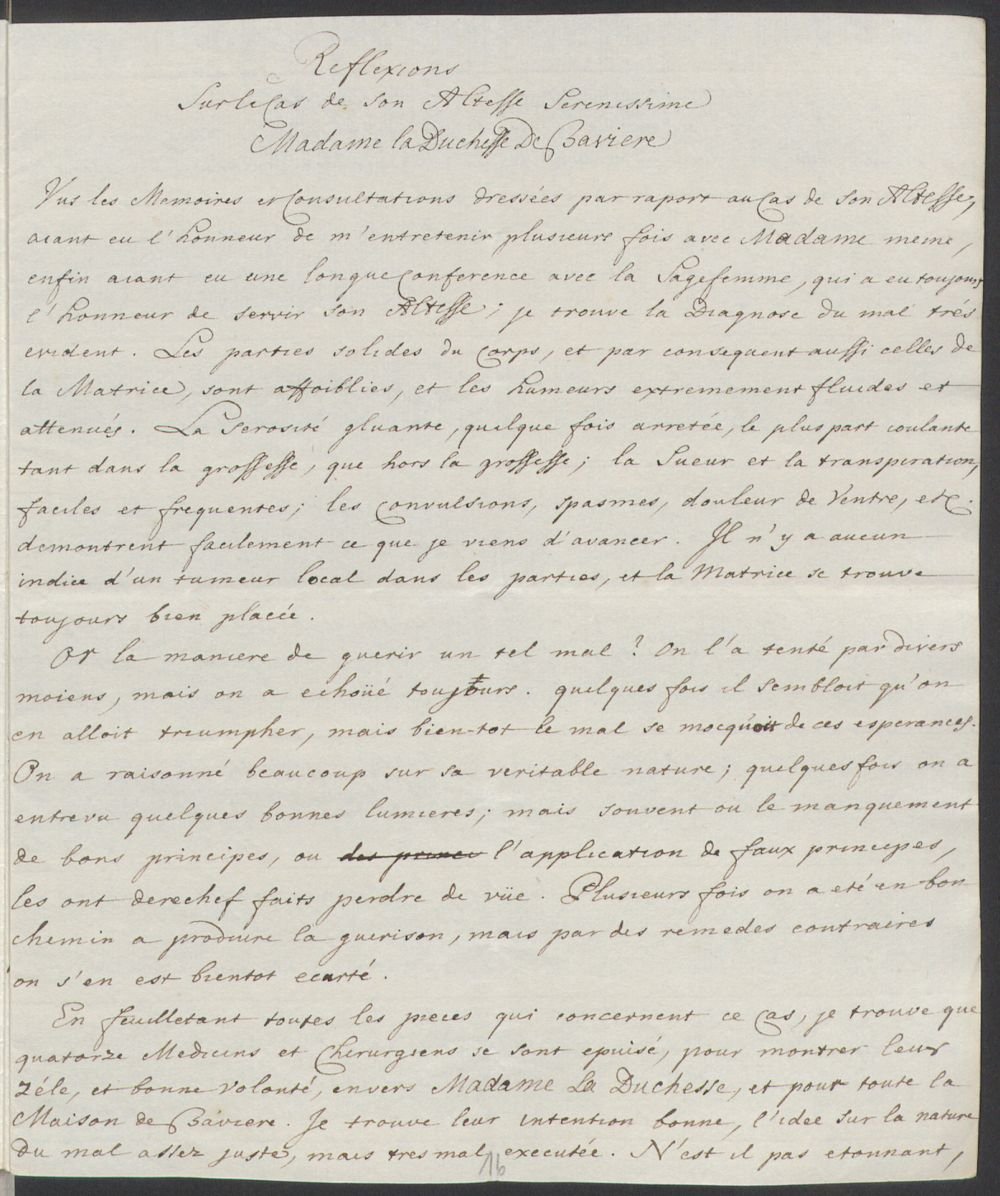 Reflexions
Sur le Cas de son Altesse Serenissime
Madame la Duchesse De Baviere
Vus les Memoires et Consultations dressées par raport au Cas de son Altesse,
aiant eu l'honneur de m'entretenir plusieurs fois avec Madame meme,
enfin aiant eu une longue Conference avec la Sagefemme, qui a eu toujours
l'honneur de servir son Altesse; je trouve la Diagnose du mal trés
evident. Les parties solides du Corps, et par consequent aussi celles de
la Matrice, sont affoiblies, et les humeurs extremement fluides et
attenués. La Serosité gluante, quelque fois arretée, le plus part coulante
tant dans la grossesse, que hors la grossesse; la Sueur et la transpiration,
faciles et frequentes; les Convulsions, spasmes, douleur de Ventre, etc.
demontrent facilement ce que je viens d'avancer. Il n'y a aucun
indice d'un tumeur local dans les parties, et la Matrice se trouve
toujours bien placée.
Or la maniere de guerir un tel mal? On l'a tenté par divers
moiens, mais on a echoüé toujours. quelques fois il sembloit qu'on
en alloit triumpher, mais bien-tot le mal se mocquoit de ces esperances.
On a raisonné beaucoup sur sa veritable nature; quelques fois on a
entrevu quelques bonnes lumieres; mais souvent ou le manquement
de bons principes, ou des princi l'application de faux principes,
les ont derechef faits perdre de vüe. Plusieurs fois on a eté en bon
chemin a produire la guerison, mais par des remedes contraires
on s'en est bientot ecarté.
En feuilletant toutes les pieces qui concernent ce Cas, je trouve que
quatorze Medicins et Chirurgiens se sont epuisé, pour montrer leur
zéle, et bonne volonté, envers Madame La Duchesse, et pour toute la
Maison de Baviere. Je trouve leur intention bonne, l'idee sur la nature
du mal assez juste, mais tres mal executée. N'est il pas etonnant,
16